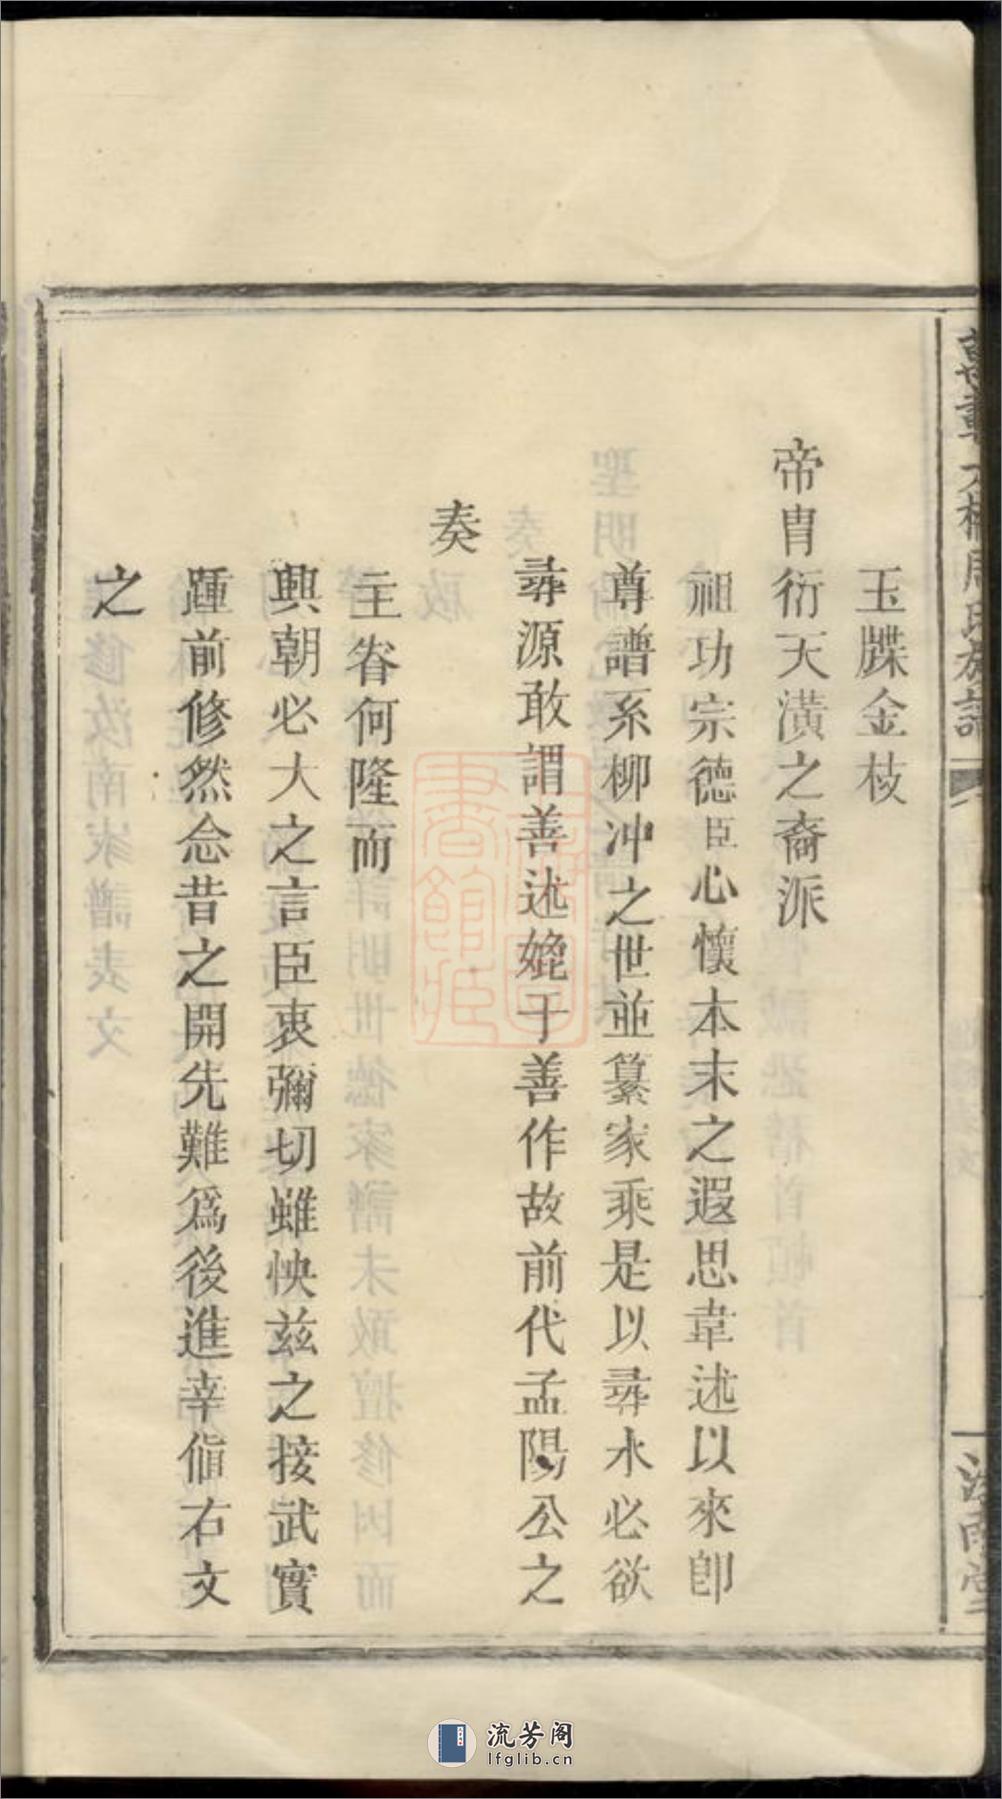 玉牒金枝
帝胄衍天潢之裔派
祖功宗德臣心懷本末之遐思韋述以來卽
尊譜系柳冲之世並纂家乘是以尋水必欲
尋源敢謂善述媲于善作故前代孟陽公之
奏
主眷何隆而
興朝必大之言臣衷彌切雖怏兹之接武實
踵前修然念昔之開先難爲後進幸值右文
之
周氏族譜
汝南堂
圖書館
流芳阁
lfglib.cn